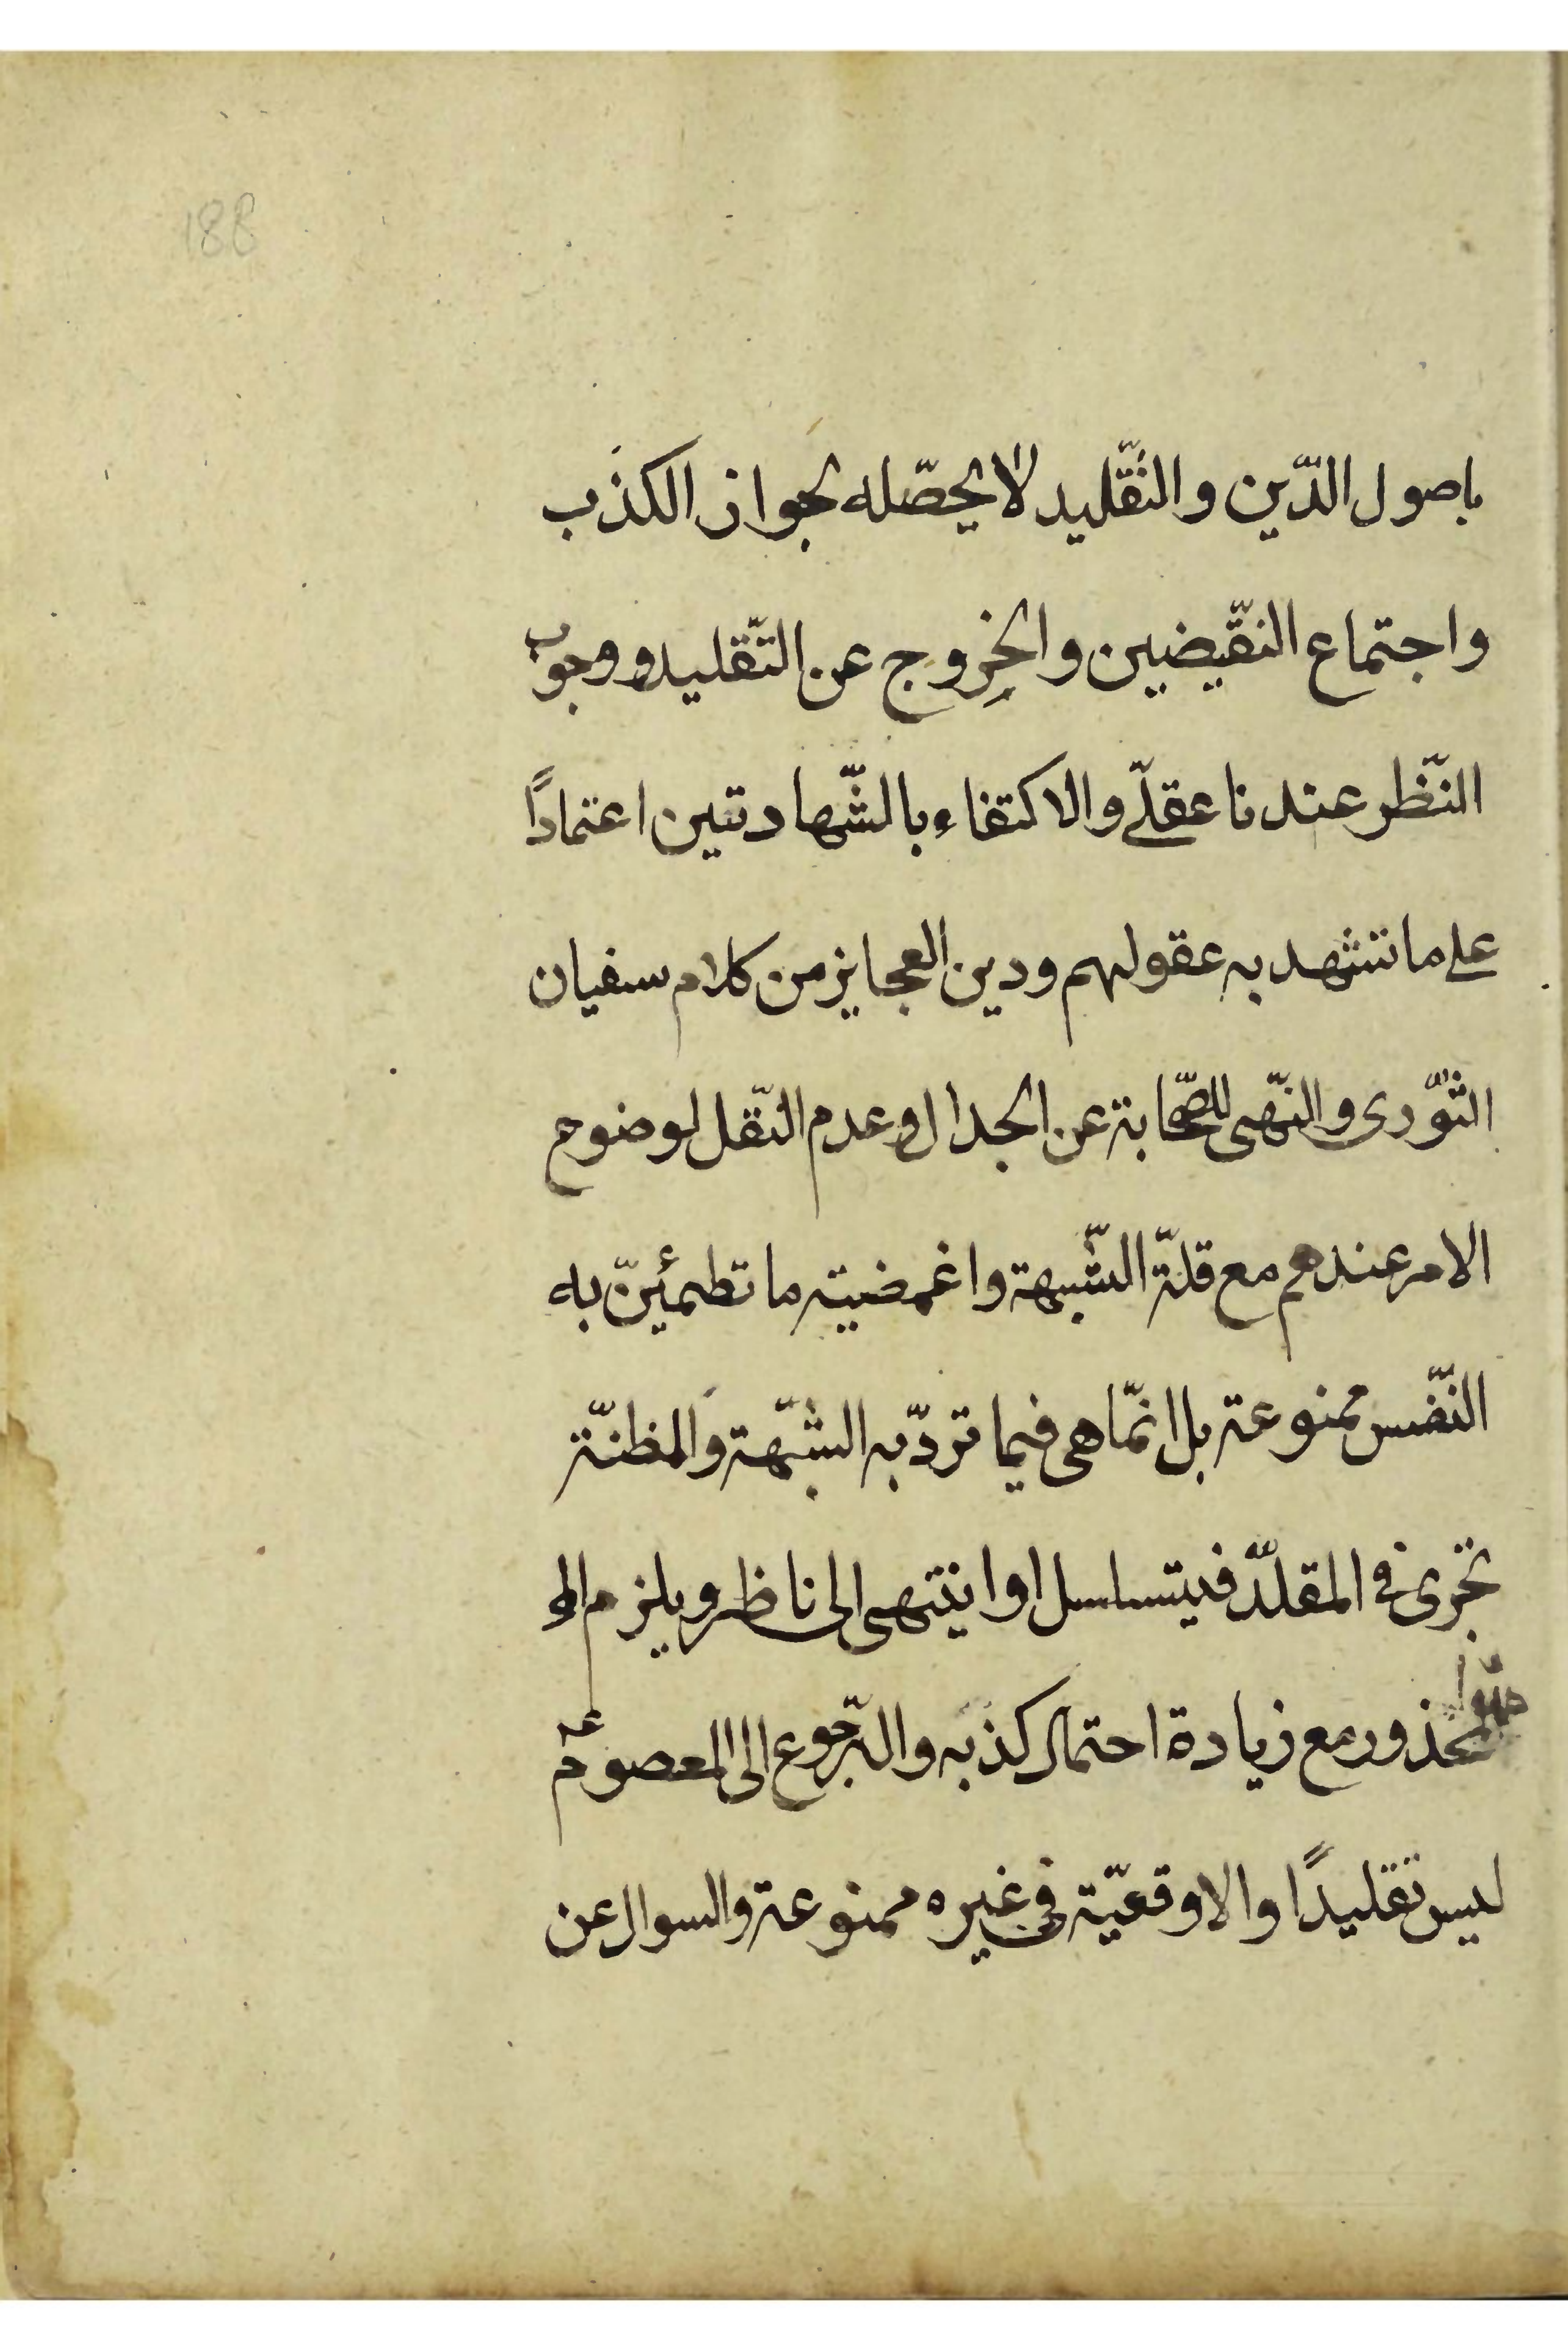 188
باصول الدّين والتّقليد لا يحصّله لجواز الكذب
واجتماع النقّيضين والخروج عن التّقليد ووجوب
النّظر عندنا عقلّے والاكتفاء بالشّهادتين اعتماداً
على ما تشهد به عقولهم ودين العجايز من كلام سفيان
الثّورى والنّهى للصّحابة عن الجدال وعدم النّقل لوضوح
الامر عندهم مع قلّة الشّبهة واغمضيته ما تطمئنّ به
النّفس ممنوعة بل انمّا هى فيما تردّ به الشّبهة والمظنّة
تجرى فى المقلّد فيتساسل اوا ينتهى الى ناظر ويلزم
محذور مع زيادة احتمال كذبه والرّجوع الى المعصوم عم
ليس تقليدًا والاوقعيّة فى غيره ممنوعة والسوال عن